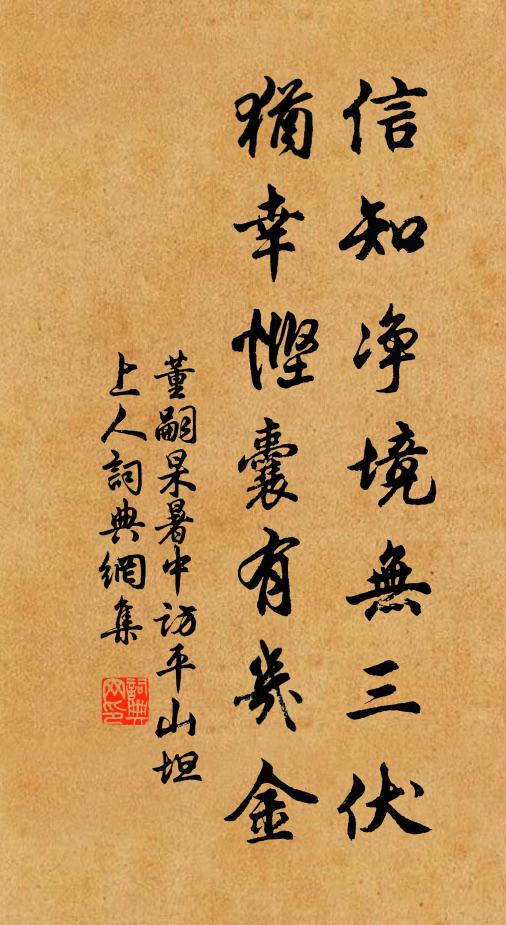 信知净境無三伏
猶幸慳囊有幾金
董嗣杲暑中访平山坦
上人詞典網集
詞典網印